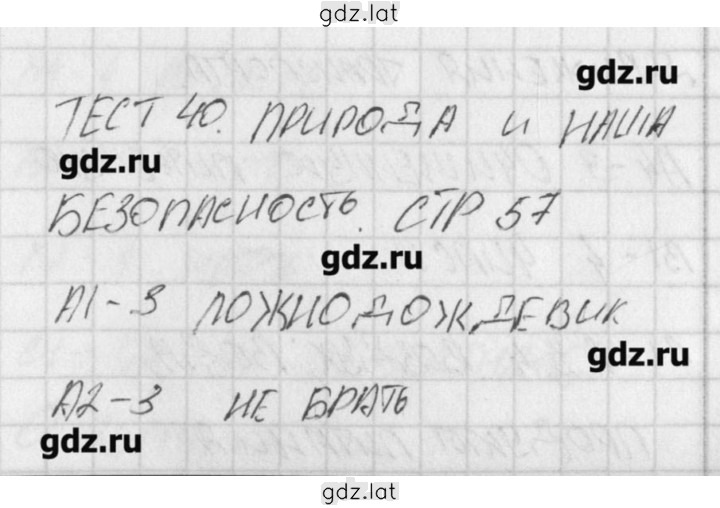 gdz.lat
gdz.ru
ТЕСТ 40. ПРИРОДА И НАША
gdz.ru
БЕЗОПАСНОСТЬ. СТР 57
gdz.ru
А1-3 ЛОЖНОДОЖДЕВИК
gdz.ru
А2-3 НЕ БРАТЬ
gdz.ru
gdz.lat